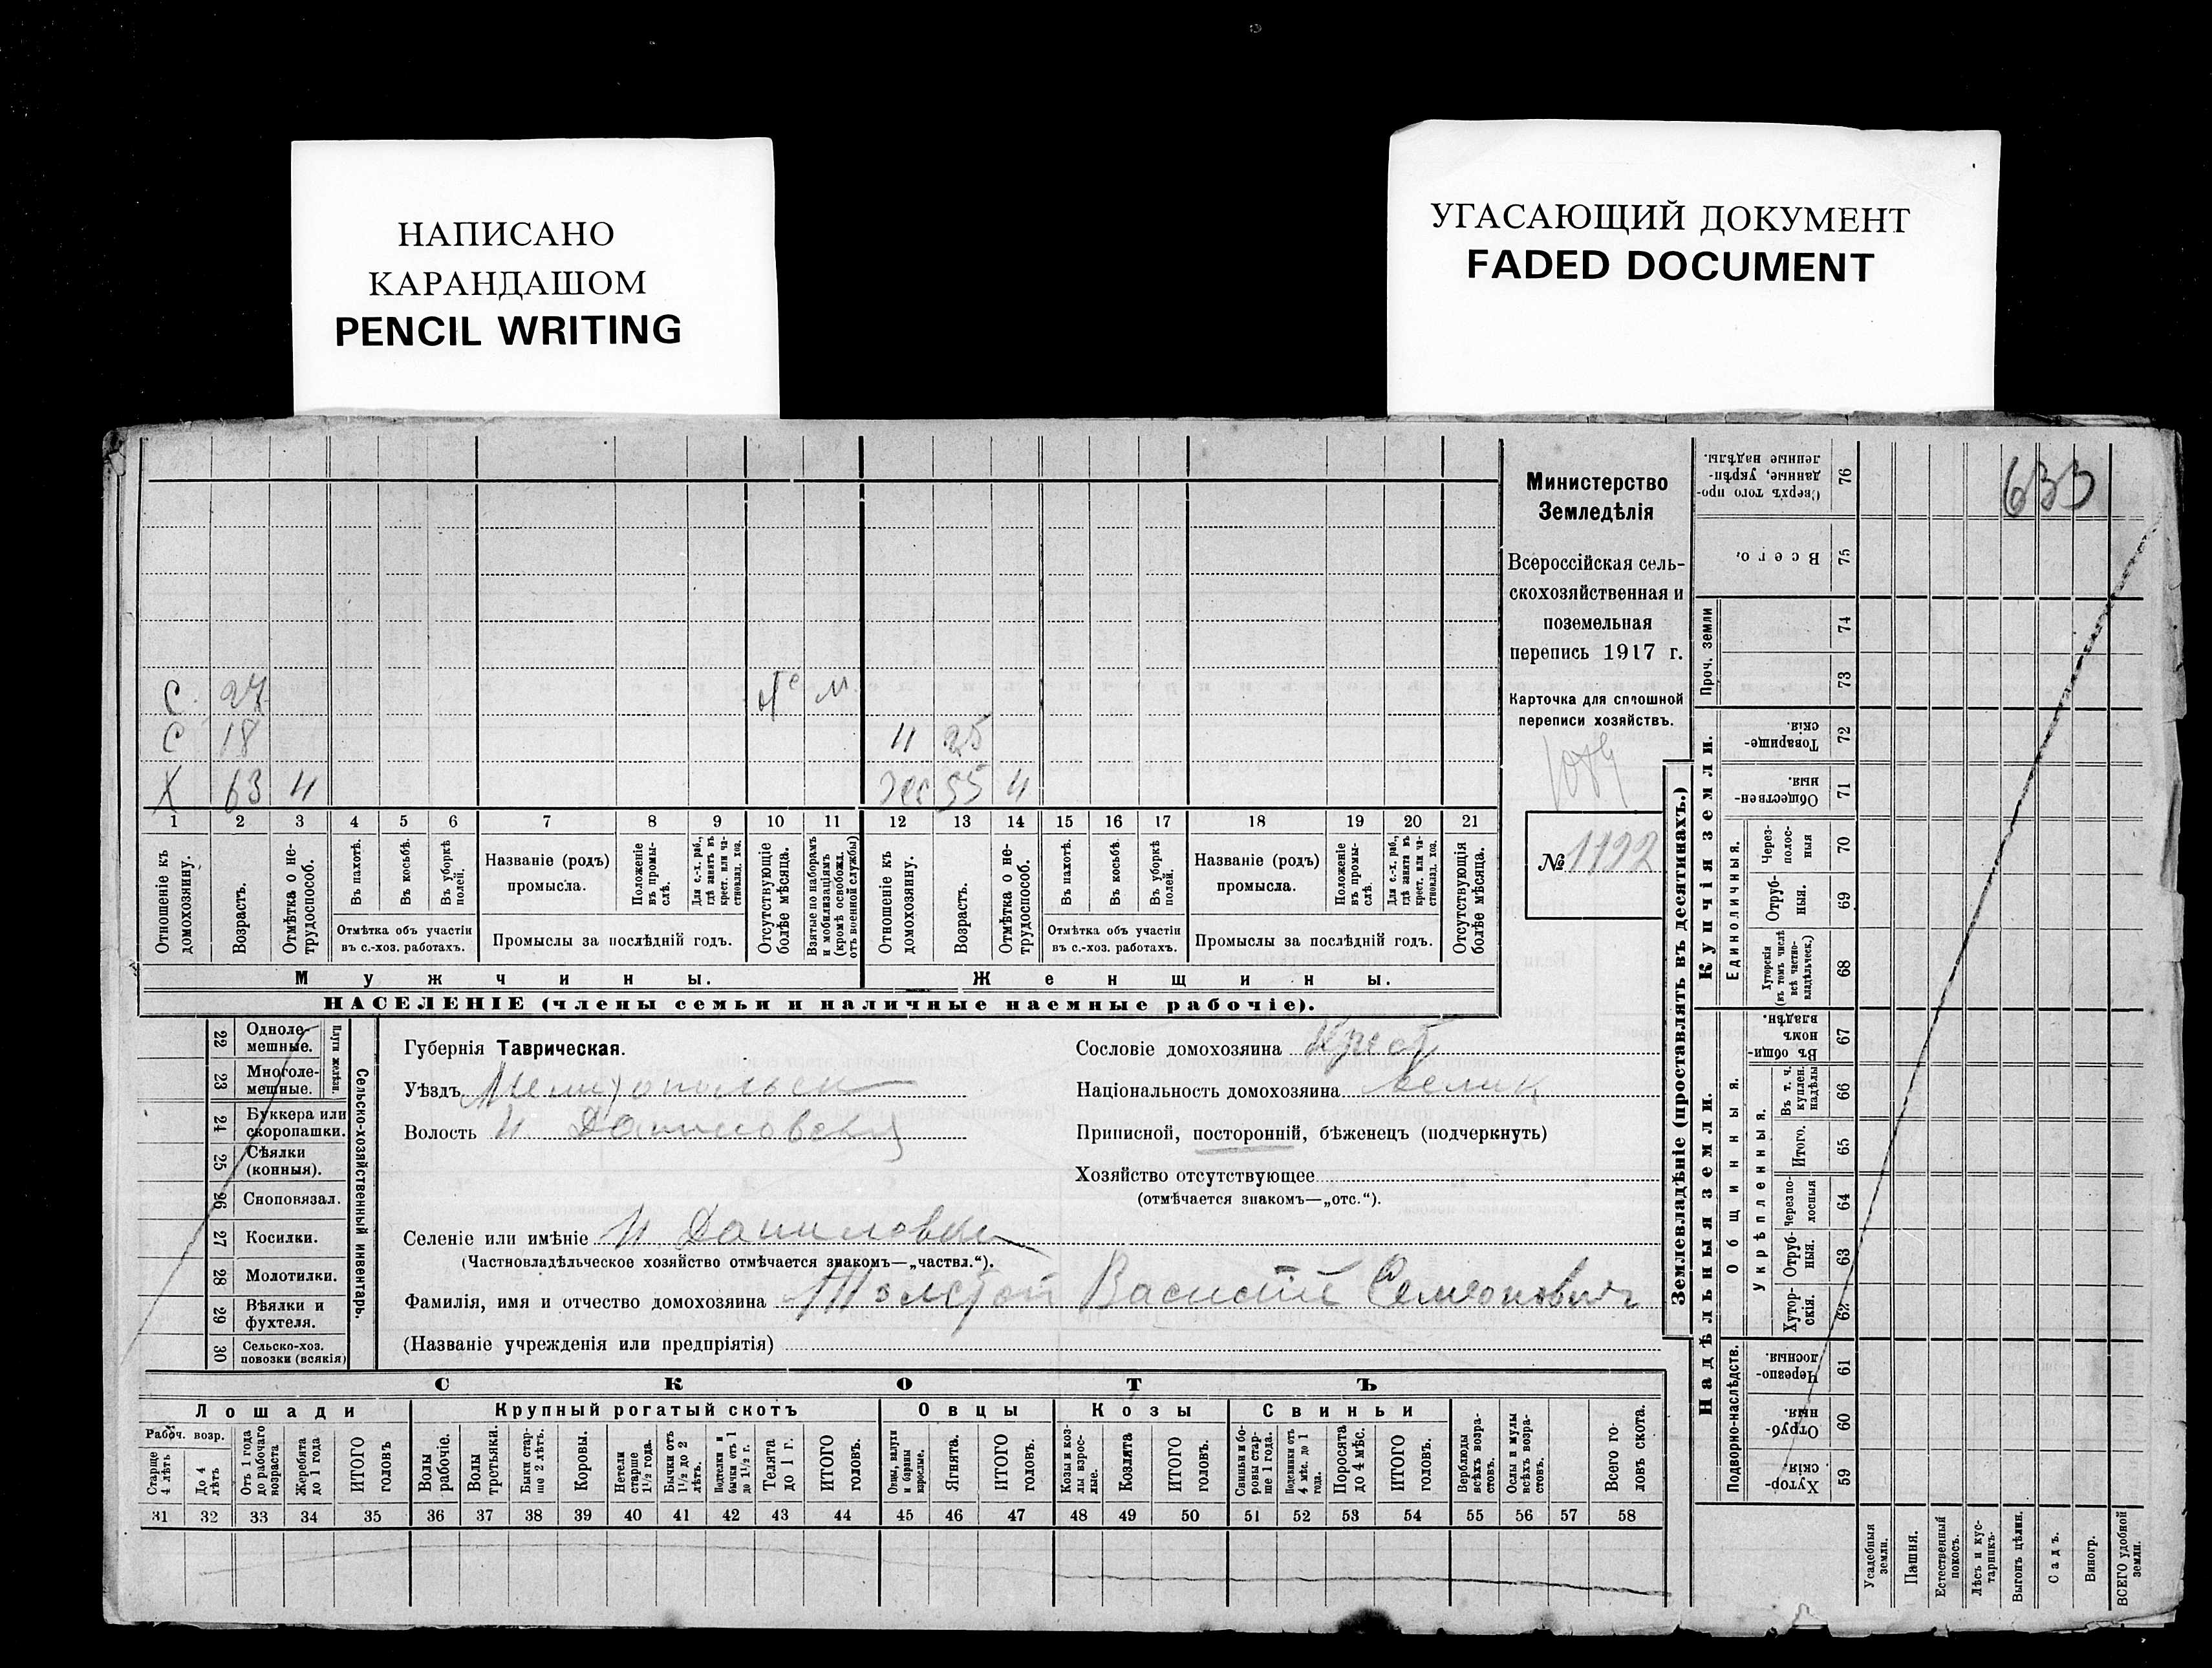 НАПИСАНО
КАРАНДАШОМ
PENCIL WRITING
УГАСАЮЩИЙ ДОКУМЕНТ
FADED DOCUMENT
633
Министерство
Земледѣлія
Всероссійская сель-
скохозяйственная и
поземельная
перепись 1917 г.
Карточка для сплошной
переписи хозяйствъ.
1089
№ 1192
С 27
С 18
Х 63 н
25
55 н
1 2 3 4 5 6 7 8 9 10 11 12 13 14 15 16 17 18 19 20 21
Отношеніе къ домохозяину.
Возрастъ.
Отмѣтка о не-трудоспособ.
Въ пахотѣ.
Въ косьбѣ.
Въ уборкѣ полей.
Отмѣтка объ участіи
въ с.-хоз. работахъ.
Названіе (родъ)
промысла.
Положеніе въ промы-слѣ.
Для с.-х. раб., гдѣ занятъ въ крест. или ча-стновлад. хоз.
Промыслы за послѣдній годъ.
Отсутствующіе болѣе мѣсяца.
Взятые по наборамъ и мобилизаціямъ (кромѣ освобожд. отъ военной службы)
Отношеніе къ домохозяину.
Возрастъ.
Отмѣтка о не-трудоспособ.
Въ пахотѣ.
Въ косьбѣ.
Въ уборкѣ полей.
Отмѣтка объ участіи
въ с.-хоз. работахъ.
Названіе (родъ)
промысла.
Положеніе въ промы-слѣ.
Для с.-х. раб., гдѣ занята въ крест. или ча-стновлад. хоз.
Промыслы за послѣдній годъ.
Отсутствующія болѣе мѣсяца.
Мужчины.
Женщины.
НАСЕЛЕНІЕ (члены семьи и наличные наемные рабочіе).
22 Одноле-мешные.
23 Многоле-мешные.
Плуги желѣзн.
24 Буккера или скоропашки.
25 Сѣялки (конныя).
26 Сноповязал.
27 Косилки.
28 Молотилки.
29 Вѣялки и фухтеля.
30 Сельско-хоз. повозки (всякія)
Сельско-хозяйственный инвентарь.
Губернія Таврическая.
Уѣздъ Мелитопольск
Волость Н. Даниловская
Селеніе или имѣніе Н. Даниловка
(Частновладѣльческое хозяйство отмѣчается знакомъ—„частвл.“).
Фамилія, имя и отчество домохозяина Толстой Василій Семеонович
(Названіе учрежденія или предпріятія)
Сословіе домохозяина Крест
Національность домохозяина велик
Приписной, посторонній, бѣженецъ (подчеркнуть)
Хозяйство отсутствующее
(отмѣчается знакомъ—„отс.“).
СКОТЪ
Лошади
Крупный рогатый скотъ
Овцы
Козы
Свиньи
Рабоч. возр.
Старше 4 лѣтъ
До 4 лѣтъ
Отъ 1 года до рабочаго возраста
Жеребята до 1 года
ИТОГО головъ
Волы рабочіе.
Волы гростьяки.
Быки стар-ше 2 лѣтъ.
Коровы.
Нетели старше 1½ года.
Бычки отъ 1½ до 2 лѣтъ.
Подтелки и бычки отъ 1 до 1½ г.
Телята до 1 г.
ИТОГО головъ.
Овцы, валухи и бараны взрослые.
Ягнята.
ИТОГО головъ.
Козы и коз-лы взрос-лые.
Козлята
ИТОГО головъ.
Свиньи и бо-ровы стар-ше 1 года.
Подсвинки отъ 4 мѣс. до 1 года.
Поросята до 4 мѣс.
ИТОГО головъ.
Верблюды всѣхъ возра-стовъ.
Ослы и мулы всѣхъ возра-стовъ.
Всего го-ловъ скота.
31 32 33 34 35 36 37 38 39 40 41 42 43 44 45 46 47 48 49 50 51 52 53 54 55 56 57 58
Землевладѣніе (проставлять въ десятинахъ.)
Надѣльныя земли.
Купчія земли.
Проч. земли
Подворно-наслѣдств.
Общинныя.
Укрѣпленныя.
Единоличныя.
Сверхъ того про-данные, укрѣп-ленные надѣлы. 76
Всего. 75
74
73
Товарище-скія. 72
Обществен-ныя. 71
Через-полос-ныя 70
Отруб-ныя. 69
Хуторскія (въ томъ числѣ всѣ частно-владѣльческ.) 68
Въ общин-номъ владѣн. 67
Въ т. ч. куплен. надѣлы 66
Итого. 65
Черезпо-лосныя 64
Отруб-ныя. 63
Хутор-скія. 62
Черезпо-лосныя. 61
Отруб-ныя. 60
Хутор-скія. 59
Усадебныя земли.
Пашня.
Естественный покосъ.
Лѣсъ и кус-тарникъ.
Выгонъ цѣлин.
Садъ.
Виногр.
ВСЕГО удобной земли.